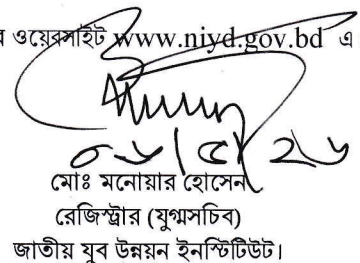 ওয়েবসাইট www.niyd.gov.bd এ
০৬/৫/২৬
মোঃ মনোয়ার হোসেন
রেজিস্ট্রার (যুগ্মসচিব)
জাতীয় যুব উন্নয়ন ইনস্টিটিউট।